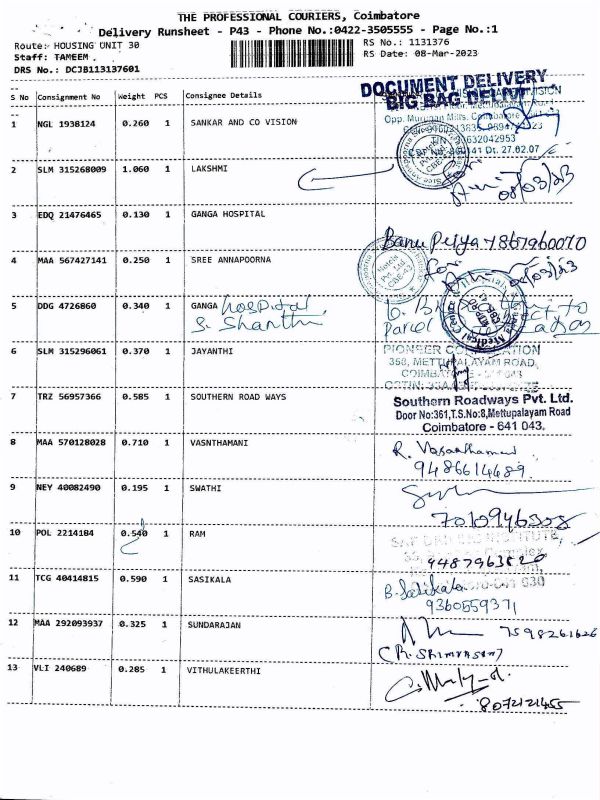 THE PROFESSIONAL COURIERS, Coimbatore
Delivery Runsheet - P43 - Phone No.:0422-3505555 - Page No.:1
Route: HOUSING UNIT 30
RS No.: 1131376
Staff: TAMEEM
RS Date: 08-Mar-2023
DRS No.: DCJB113137601
DOCUMENT DELIVERY
BIG BAG DELIVE
S No Consignment No Weight PCS Consignee Details
1 NGL 1938124 0.260 1 SANKAR AND CO VISION
Opp. Murugan Mills, Coimbatore
Dt. 27.02.07
2 SLM 315268009 1.060 1 LAKSHMI
08/03/23
3 EDQ 21476465 0.130 1 GANGA HOSPITAL
Banu Priya 7867960070
4 MAA 567427141 0.250 1 SREE ANNAPOORNA
for
08/03/23
5 DDG 4726860 0.340 1 GANGA hospital
S. Shanthi
Parcel
6 SLM 315296061 0.370 1 JAYANTHI
PIONEER CORPORATION
358, METTUPALAYAM ROAD,
7 TRZ 56957366 0.585 1 SOUTHERN ROAD WAYS
Southern Roadways Pvt. Ltd.
Door No:361,T.S.No:8,Mettupalayam Road
Coimbatore - 641 043.
8 MAA 570128028 0.710 1 VASNTHAMANI
R. Vasanthamani
9486614689
9 NEY 40082490 0.195 1 SWATHI
7010946308
10 POL 2214184 0.540 1 RAM
INSTITUTE,
9487963820
11 TCG 40414815 0.590 1 SASIKALA
B. Sasikala
9360559371
12 MAA 292093937 0.325 1 SUNDARAJAN
7598261626
13 VLI 240689 0.285 1 VITHULAKEERTHI
8072121455